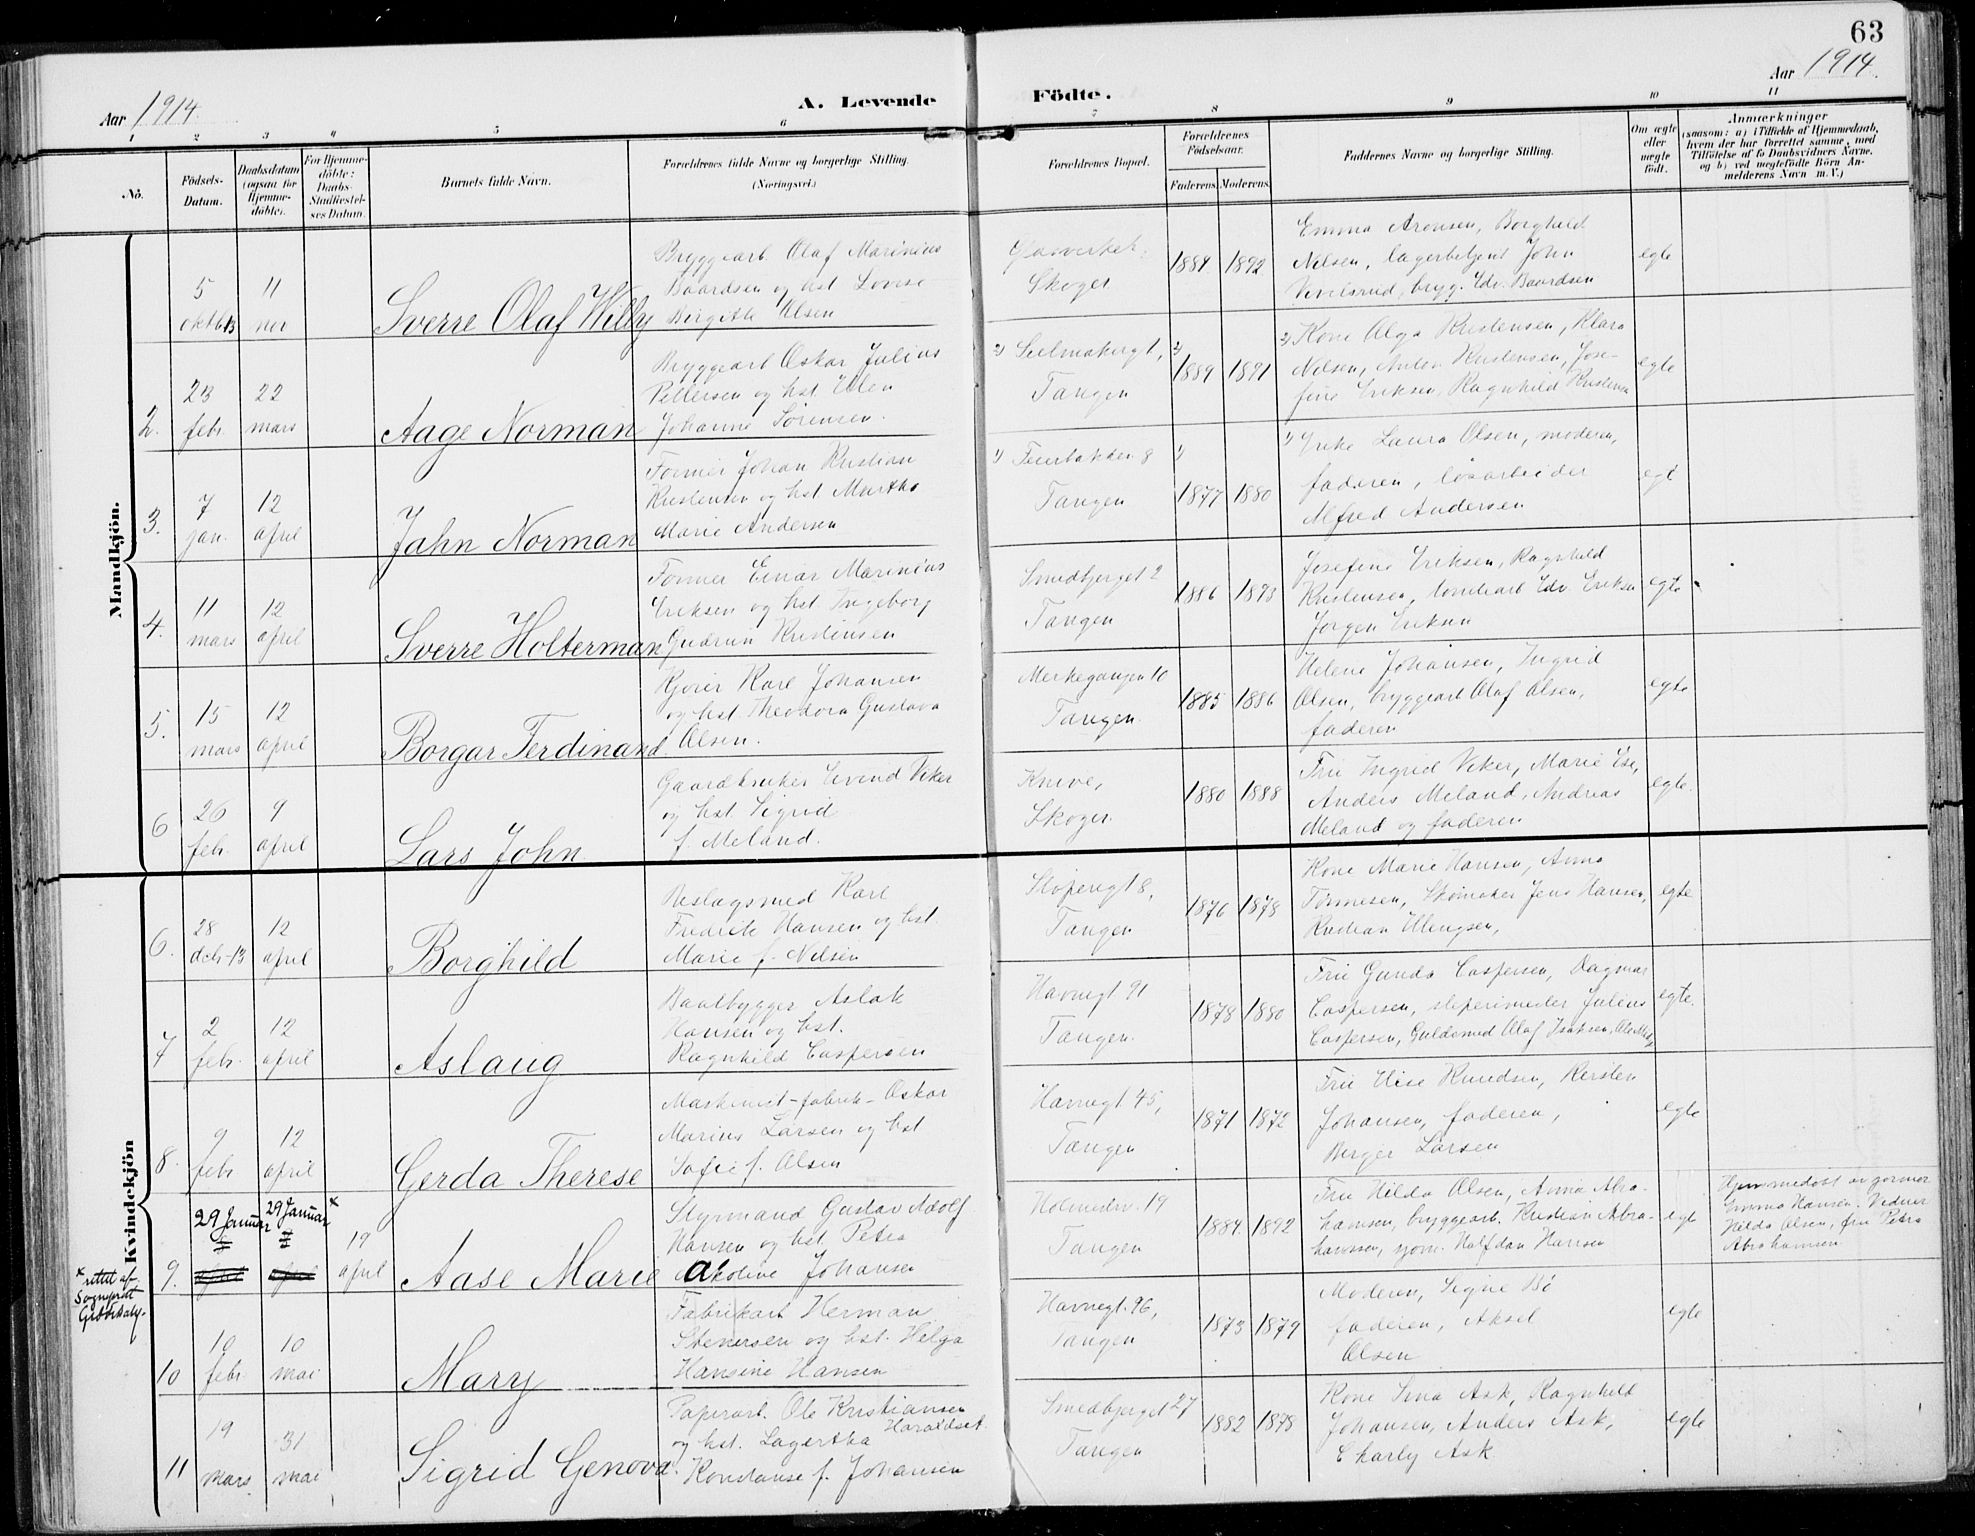 63
Aar 1914.
Aar 1914.
A. Levende Födte.
1 2 3 4 5 6 7 8 9 10 11
No.
Födsels-
Datum.
Daabsdatum
(ogsaa for
Hjemme-
döbte).
For Hjemme-
döbte:
Daabs-
Stadfæstel-
ses Datum.
Barnets fulde Navn.
Forældrenes fulde Navne og borgerlige Stilling.
(Næringsvei.)
Forældrenes Bopæl.
Forældrenes
Födselsaar.
Faderens. Moderens.
Faddernes Navne og borgerlige Stilling.
Om ægte
eller
uægte
født.
Anmærkninger
(saasom: a) i Tilfælde af Hjemmedaab,
hvem der har forrettet samme, med
Tilföielse af to Daabsvidners Navne,
og b) ved uægtefödte Börn An-
melderens Navn m. V.)
Mandkjön.
5
oktbr 13
11
Sverre Olaf Willy
Bryggearb. Olaf Marinius
Baardsen og hst. Lovise
Birgitte Olsen
Glasverket
Skoger
1889 1892
Emma Aronsen, Borghild
Nilsen, lagerbetjent John
bryg. Edv. Baardsen
egte
2.
23
febr.
22
mars
Aage Norman
Bryggearb. Oskar Julius
Pettersen og hst. Ellen
Johanne Sörensen.
2) Seilmakergt 1,
Tangen
2)
1889 1891
2) Kone Olga Kristensen, Klara
Nilsen, Anton Kristensen, Jose-
fine Eriksen, Ragnhild Kristensen
egte
3.
7
jan.
12
april
Jahn Norman
Former Johan Kristian
Kristensen og hst. Martha
Marie Andersen
1) Feierbakken 8
Tangen
1)
1877 1880
1) Enke Laura Olsen, moderen,
faderen, lösarbeider
Alfred Andersen
egt
4.
11
mars
12
april
Sverre Holterman
Former Einar Marinius
Eriksen og hst. Ingeborg
Gudrun Kristensen
Smedbjerget 2
Tangen
1886 1893
Josefine Eriksen, Ragnhild
Kristensen, tomtearb. Edv. Eriksen
Jörgen Eriksen
egte
5.
15
mars
12
april
Borgar Ferdinand
Kjörer Karl Johansen
og hst. Theodora Gustava
f. Olsen.
Merkegangen 10
Tangen.
1885 1886
Helene Johansen, Ingrid
Olsen, bryggearb. Olaf Olsen,
faderen
egte
6
26
febr.
9
april
Lars John
Gaardbruker Eivend Viker
og hst. Sigrid
f. Meland.
Knive,
Skoger.
1880 1888
Fru Ingrid Viker, Marie
Anders Meland, Andreas
Meland og faderen
egte.
Kvindekjön
6.
28
dcb-13
12
april
Borghild
Beslagsmed Karl
Fredrik Hansen og hst.
Marie f. Nilsen
Slöpergt 8,
Tangen
1876 1878
Kone Marie Hansen, Anna
Tönnesen, Skomaker Jens Hansen,
Kristian Ellingsen,
egte
7
2
febr.
12
april
Aslaug
Baatbygger Aslak
Hansen og hst.
Ragnhild Caspersen
Havnegt 91
Tangen.
1878 1880
Fru Gunda Caspersen, Dagmar
Caspersen, Julius
Caspersen, Guldsmed Olaf Isaksen,
egte.
8.
9
febr
12
april
Gerda Therese
Maskinist-fabrik- Oskar
Marius Larsen og hst
Sofie f. Olsen
Havnegt. 45,
Tangen
1871 1872
Fru Elise Knudsen, Kirsten
Johansen, faderen,
Birger Larsen
egte
9.
29 Januar
29 Januar x
19
april
Aase Marie
Styrmand Gustav Adolf
Hansen og hst. Petra
Johansen
Holmestrv. 19
Tangen
1884 1892
Fru Hilda Olsen, Anna Abra-
hamsen, bryggearb. Kristian Abra-
hamsen, sjöm. Halfdan Hansen
egte
Hjemmedöbt av jormor
Emma Hansen. Vidner
Hilda Olsen, fru Petra
Abrahamsen
x
rettet af
Sogneprest
10
10
febr
10
mai
Mary
Fabrikarb. Herman
Stenersen og hst. Helga
Hansine Hansen
Havnegt. 96,
Tangen
1873 1879
Moderen, Signe Bö
faderen, Aksel
Olsen
egte
11
19
mars
31
mai
Sigrid Genova.
Papirarb. Ole Kristiansen
Haraldset
og hst. Lagertha
Konstanse f. Johansen
Smedbjerget 27
Tangen
1882 1878
Kone Ask, Ragnhild
Johansen, Anders Ask,
Charly Ask
egte